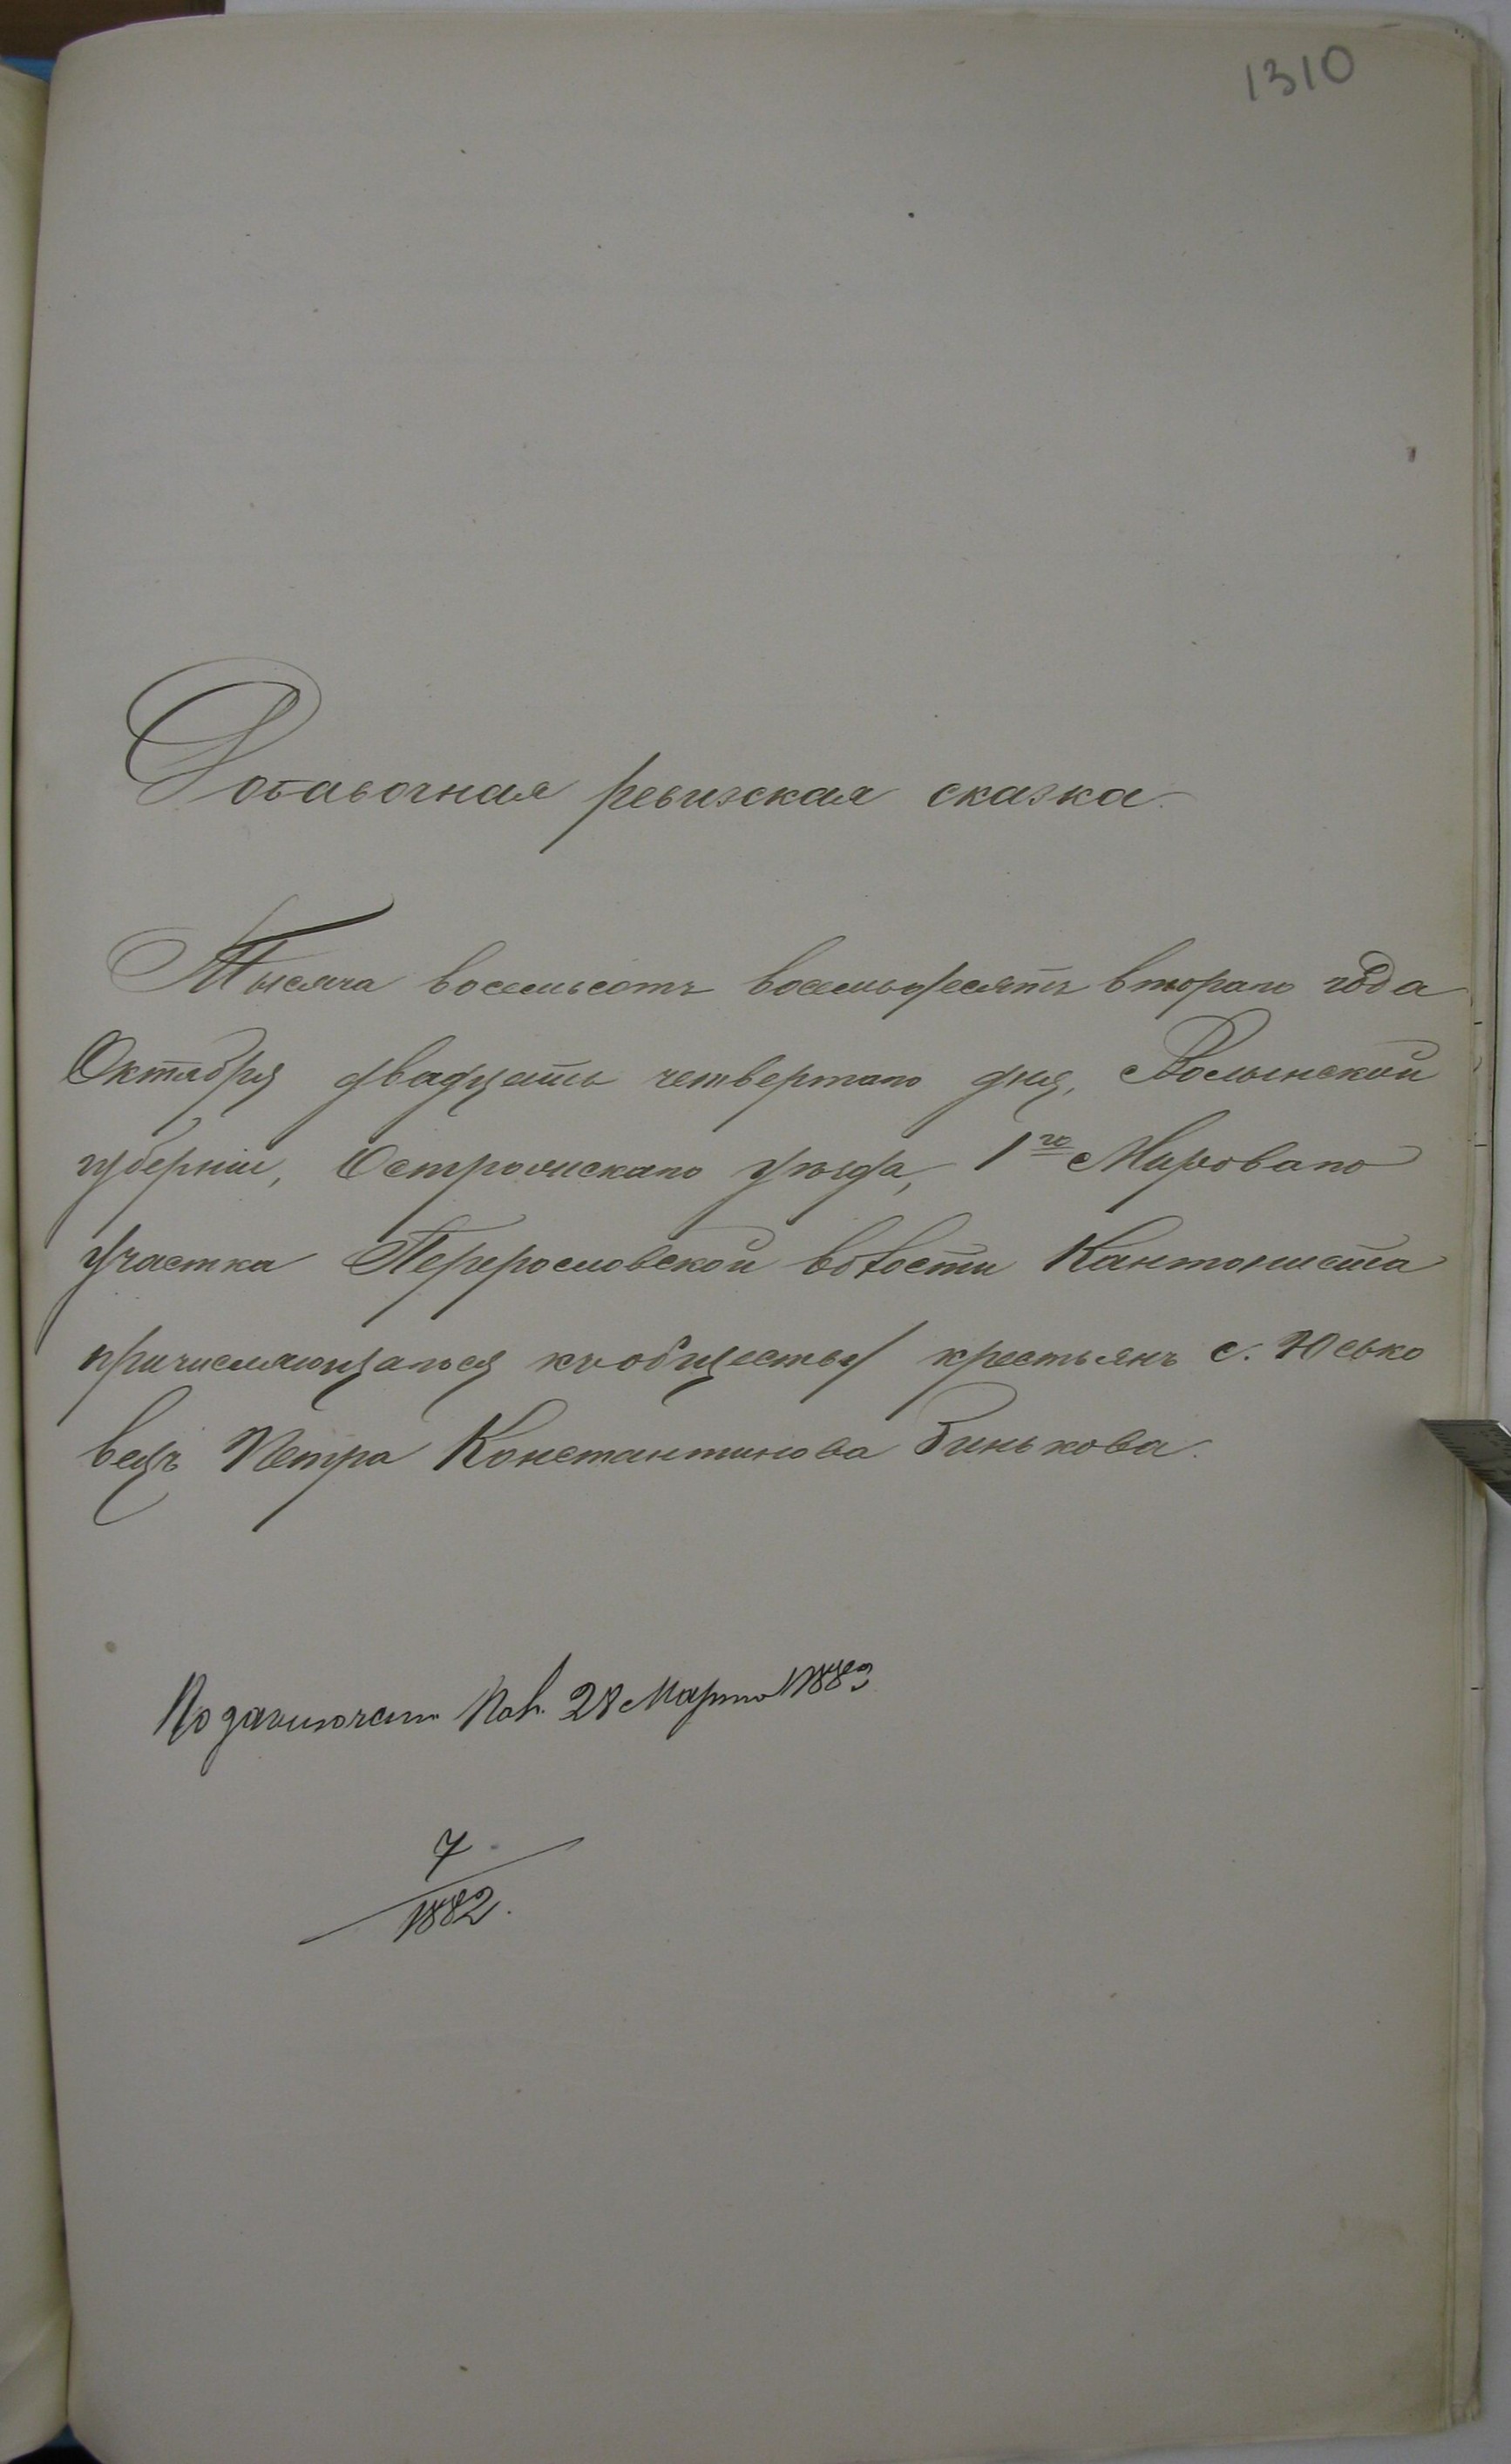 1310
Добавочная ревизская сказка.
Тысяча восемьсотъ восемьдесятъ втораго года
Октября двадцать четвертаго дня, Волынской
губерніи, Острожскаго уѣзда, 1го Мироваго
участка Перерословской волости Кантониста
причисляющагося къ обществу крестьянъ с. Юсько
вецъ Петра Константинова Зинькова.
По заключен. 28 Марта 1883
7
1882.